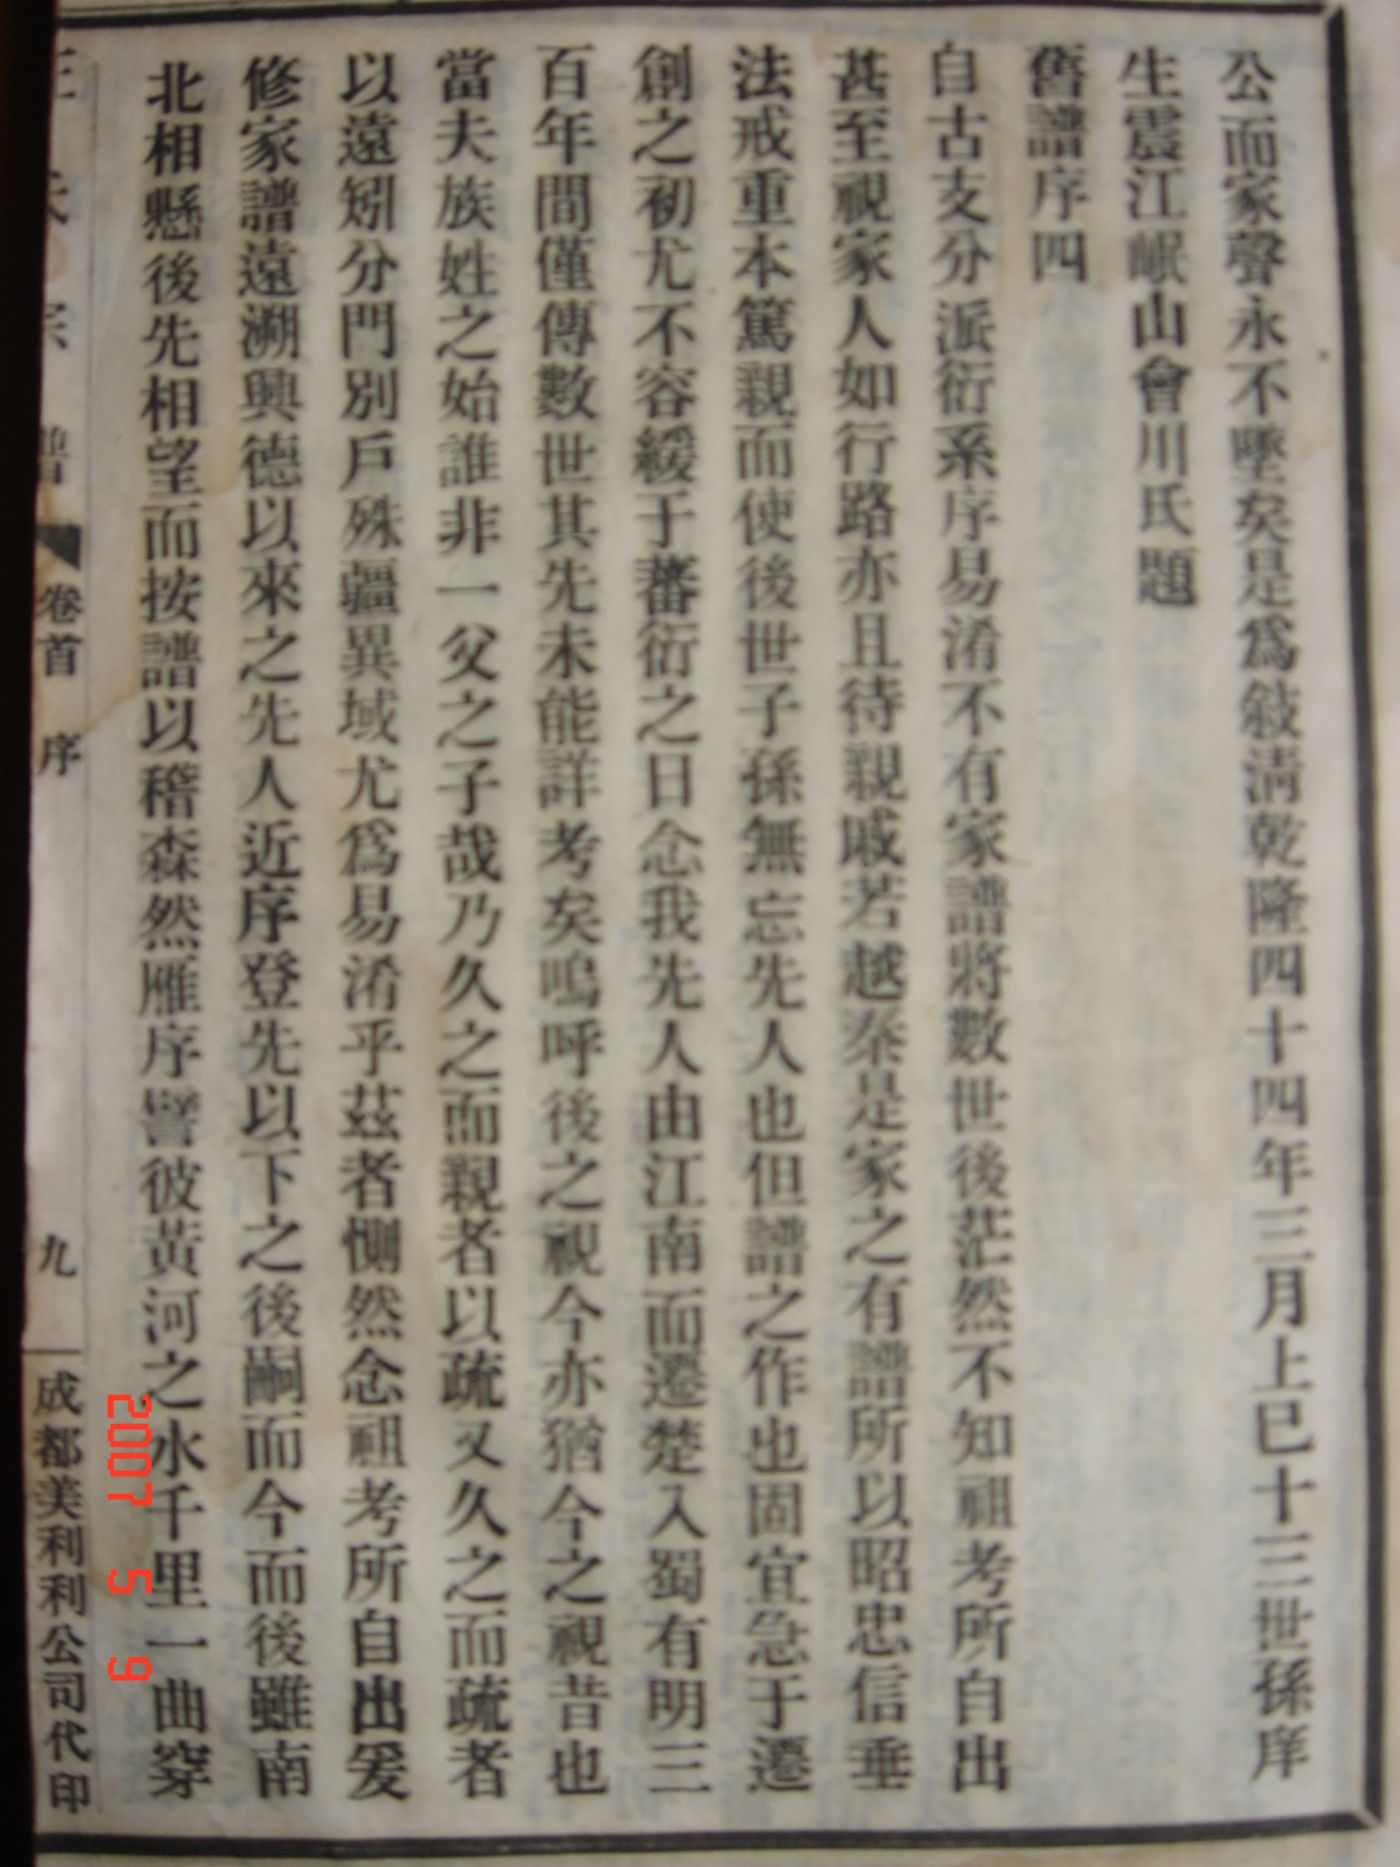 公而家聲永不墜矣是爲敍淸乾隆四十四年三月上巳十三世孫庠
生震江岷山會川氏題
舊譜序四
自古支分派衍系序易淆不有家譜將數世後茫然不知祖考所自出
甚至視家人如行路亦且待親戚若越秦是家之有譜所以昭忠信垂
法戒重本篤親而使後世子孫無忘先人也但譜之作也固宜急于遷
創之初尤不容緩于蕃衍之日念我先人由江南而遷楚入蜀有明三
百年間僅傳數世其先未能詳考矣嗚呼後之視今亦猶今之視昔也
當夫族姓之始誰非一父之子哉乃久之而親者以疏又久之而疏者
以遠矧分門別戶殊疆異域尤爲易淆乎茲者惻然念祖考所自出爰
修家譜遠溯興德以來之先人近序登先以下之後嗣而今而後雖南
北相懸後先相望而按譜以稽森然雁序譬彼黃河之水千里一曲穿
王氏宗譜 卷首 序 九 成都美利利公司代印
2007 5 9